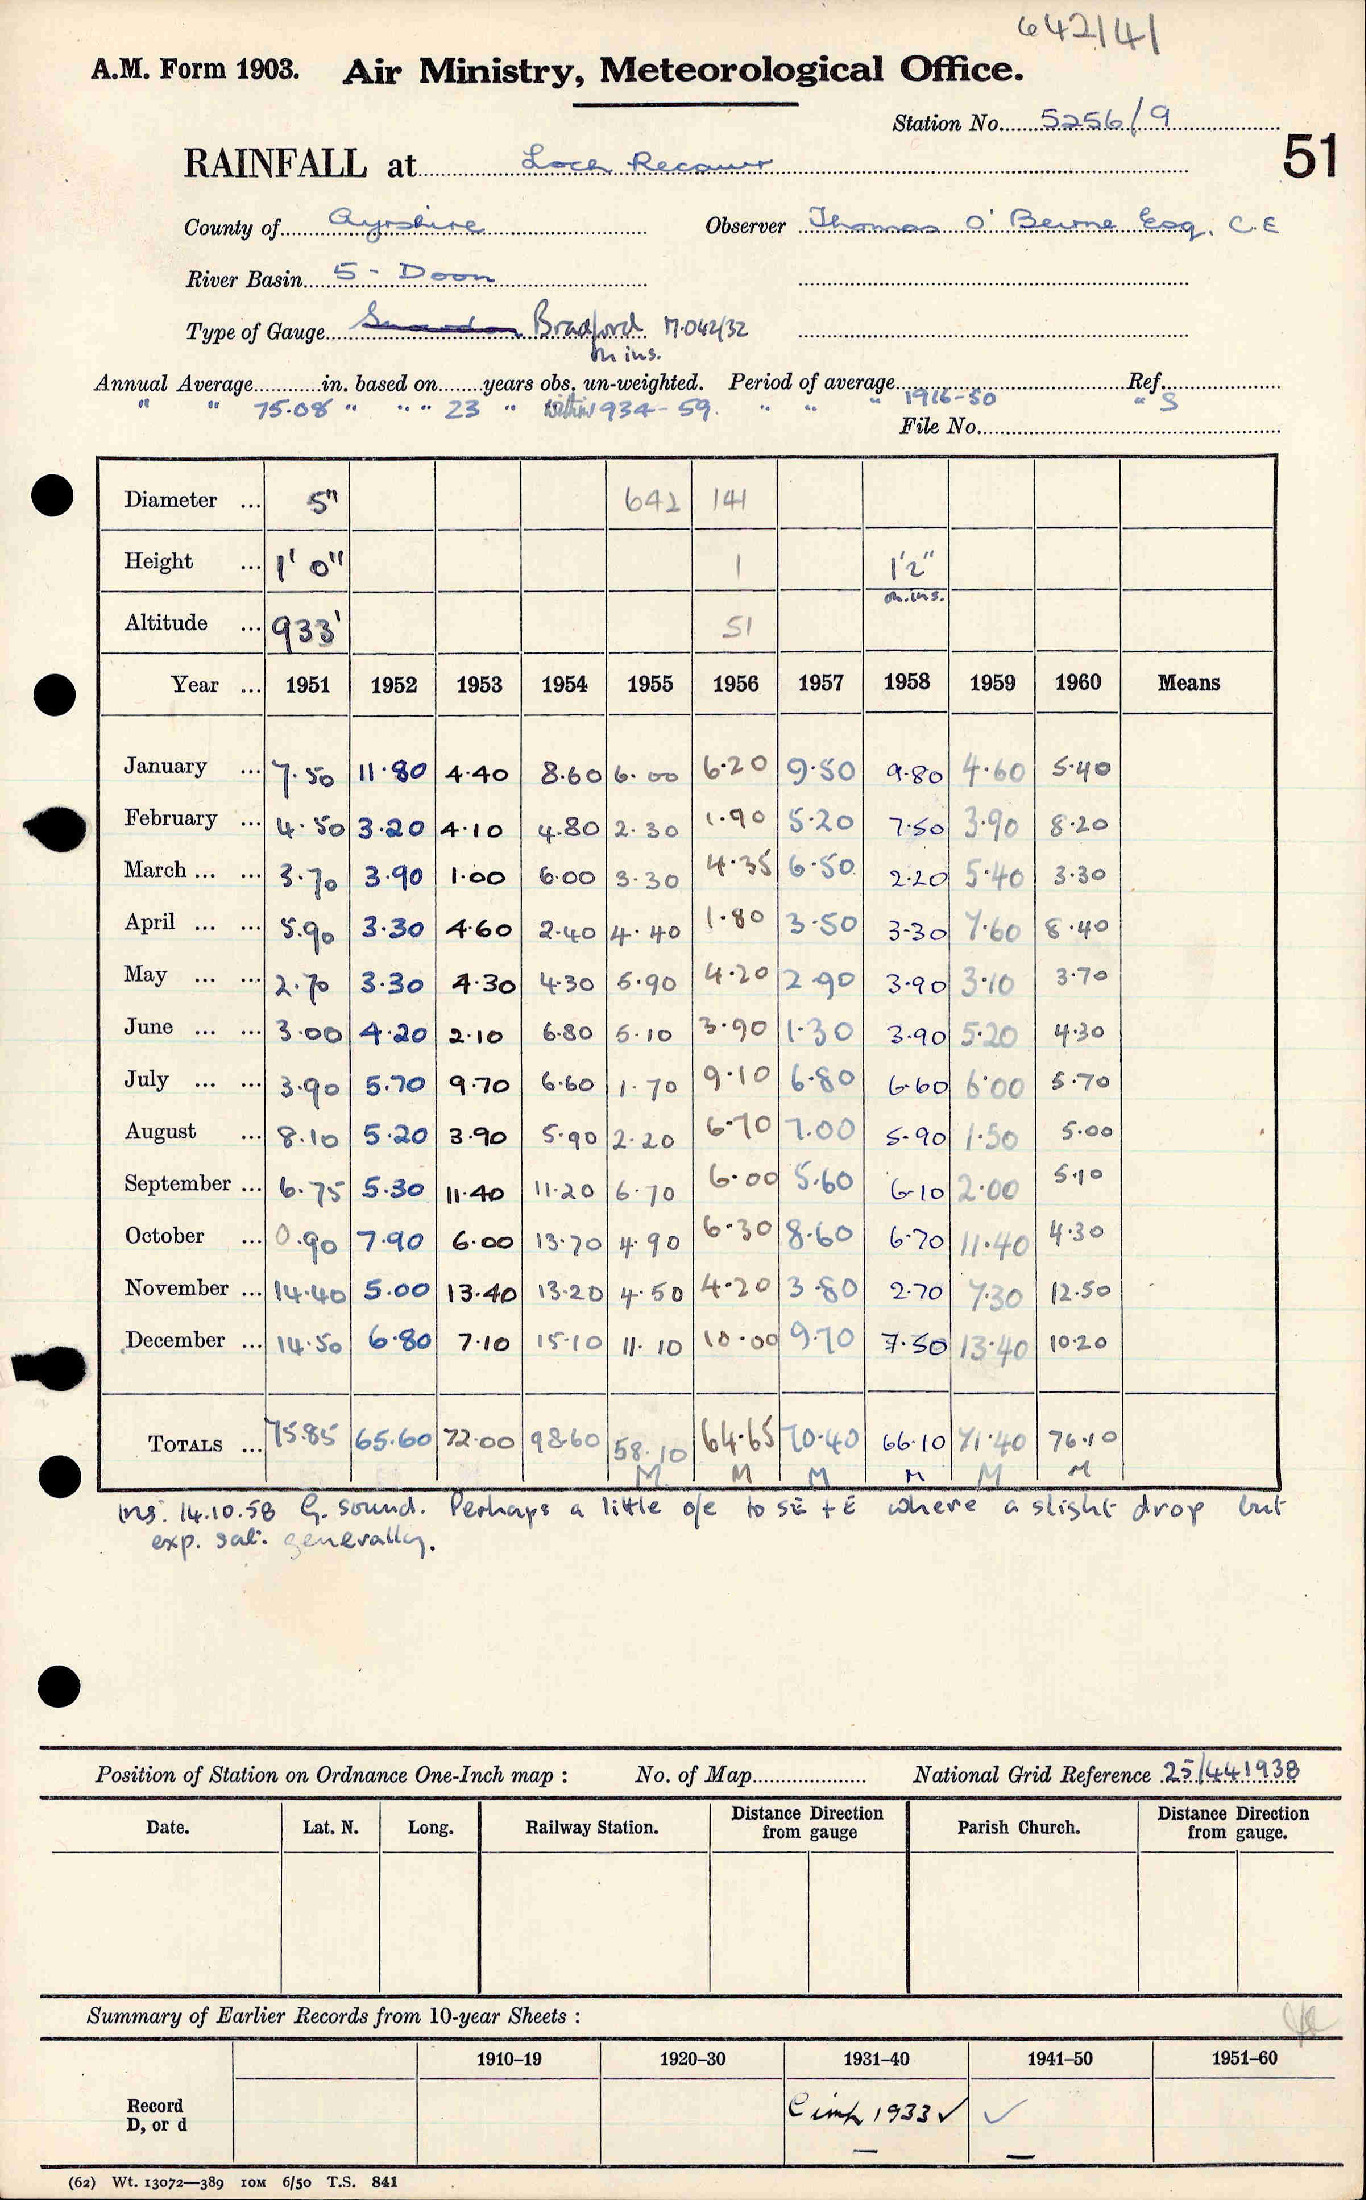 642/41
A.M. Form 1903. Air Ministry, Meteorological Office.
Station No. 5256/9
51
RAINFALL at Loch Recawr
County of Ayrshire Observer Thomas O'Beirne Esq. C.E
River Basin 5 - Doon
Type of Gauge Snowdon Bradford M.042/32
m ins.
Annual Average in. based on years obs. un-weighted. Period of average Ref.
" " 75.08 " " " 23 " within 1934-59. " " " 1916-50 " S
File No.
Diameter ... 5" 642 141
Height ... 1' 0" 1 1'2"
m.ins.
Altitude ... 933' 51
Year ... 1951 1952 1953 1954 1955 1956 1957 1958 1959 1960 Means
January ... 7.50 11.80 4.40 8.60 6.00 6.20 9.50 9.80 4.60 5.40
February ... 4.50 3.20 4.10 4.80 2.30 1.90 5.20 7.50 3.90 8.20
March ... ... 3.70 3.90 1.00 6.00 3.30 4.35 6.50 2.20 5.40 3.30
April ... ... 5.90 3.30 4.60 2.40 4.40 1.80 3.50 3.30 7.60 8.40
May ... ... 2.70 3.30 4.30 4.30 5.90 4.20 2.90 3.90 3.10 3.70
June ... ... 3.00 4.20 2.10 6.80 5.10 3.90 1.30 3.90 5.20 4.30
July ... ... 3.90 5.70 9.70 6.60 1.70 9.10 6.80 6.60 6.00 5.70
August ... 8.10 5.20 3.90 5.90 2.20 6.70 7.00 5.90 1.50 5.00
September ... 6.75 5.30 11.40 11.20 6.70 6.00 5.60 6.10 2.00 5.10
October ... 0.90 7.90 6.00 13.70 4.90 6.30 8.60 6.70 11.40 4.30
November ... 14.40 5.00 13.40 13.20 4.50 4.20 3.80 2.70 7.30 12.50
December ... 14.50 6.80 7.10 15.10 11.10 10.00 9.70 7.50 13.40 10.20
TOTALS ... 75.85 65.60 72.00 98.60 58.10 64.65 70.40 66.10 71.40 76.10
M M M M M M
Ins. 14.10.58 G. sound. Perhaps a little o/e to SE + E where a slight drop but
exp. sat. generally.
Position of Station on Ordnance One-Inch map : No. of Map National Grid Reference 25/441938
Date. Lat. N. Long. Railway Station. Distance Direction from gauge Parish Church. Distance Direction from gauge.
Summary of Earlier Records from 10-year Sheets :
1910–19 1920–30 1931–40 1941–50 1951–60
Record
D, or d
1933 ✓ ✓
(62) Wt. 13072—389 10M 6/50 T.S. 841